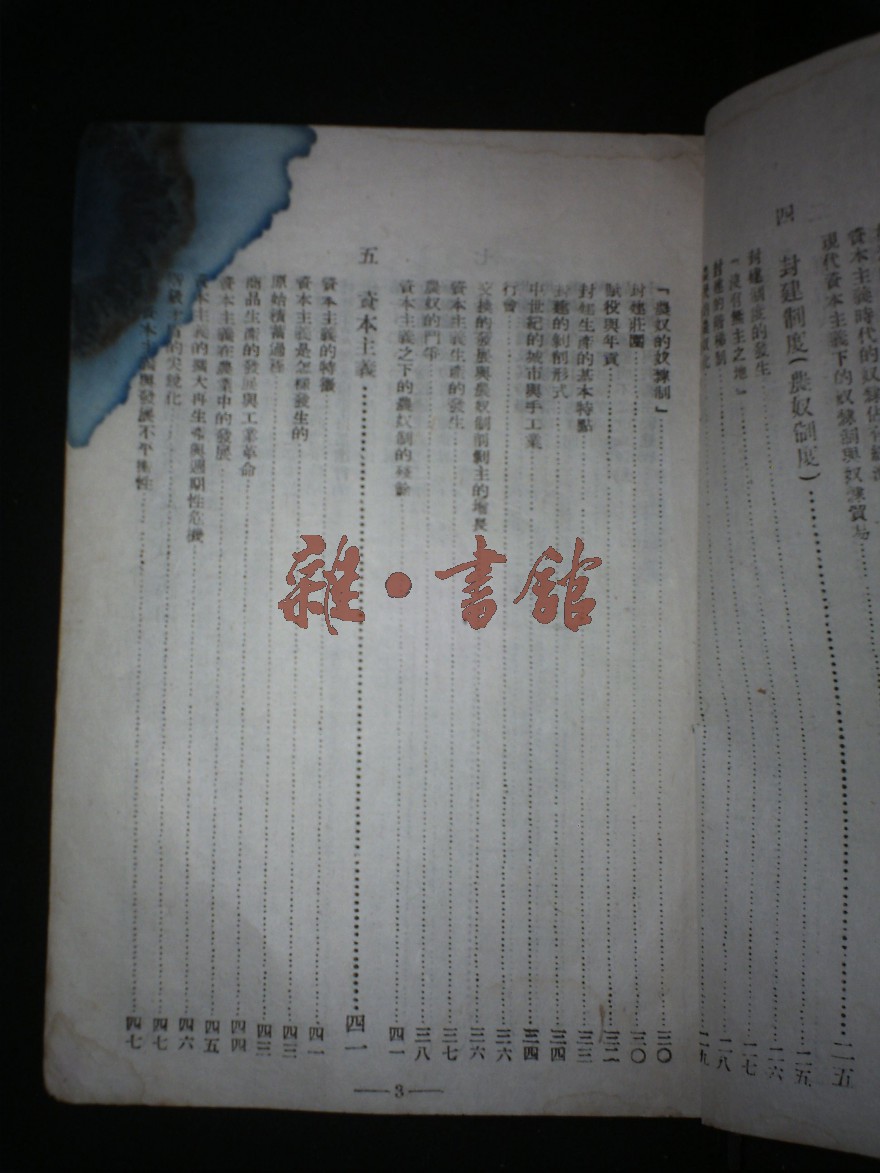 資本主義時代的奴隸
現代資本主義下的奴隸制與奴隸貿易
四 封建制度(農奴制度) 二五
封建制度的發生 二五
「沒有無主之地」 二六
封建的階梯制 二七
二八
二九
「農奴的奴隸制」 三〇
封建莊園 三〇
賦役與年貢 三二
封建生產的基本特點 三三
封建的剝削形式 三四
中世紀的城市與手工業 三四
行會 三六
交換的發展與農奴制 三六
資本主義生產的發生 三七
農奴的鬥爭 三八
資本主義之下的農奴制的殘餘 四一
五 資本主義 四一
資本主義的特徵 四一
資本主義是怎樣發生的 四三
原始積蓄過程 四三
商品生產的發展與工業革命 四四
資本主義在農業中的發展 四五
資本主義的擴大再生產與週期性危機 四六
的尖銳化 四七
資本主義與發展不平衡性 四七
3
雜・書館